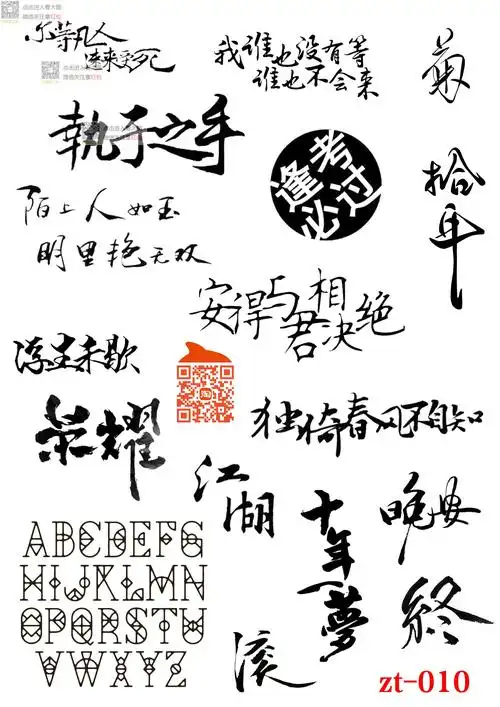 尔等凡人
速来受死
我谁也没有等
谁也不会来
菊
執子之手
逢考
必过
拾年
陌上人如玉
明里艳无双
安得与相
君决绝
浮生未歇
荣耀
独倚春风不自知
江湖
十年一夢
晚安
終
滚
ABCDEFG
HIJKLMN
OPQRSTU
VWXYZ
zt-010